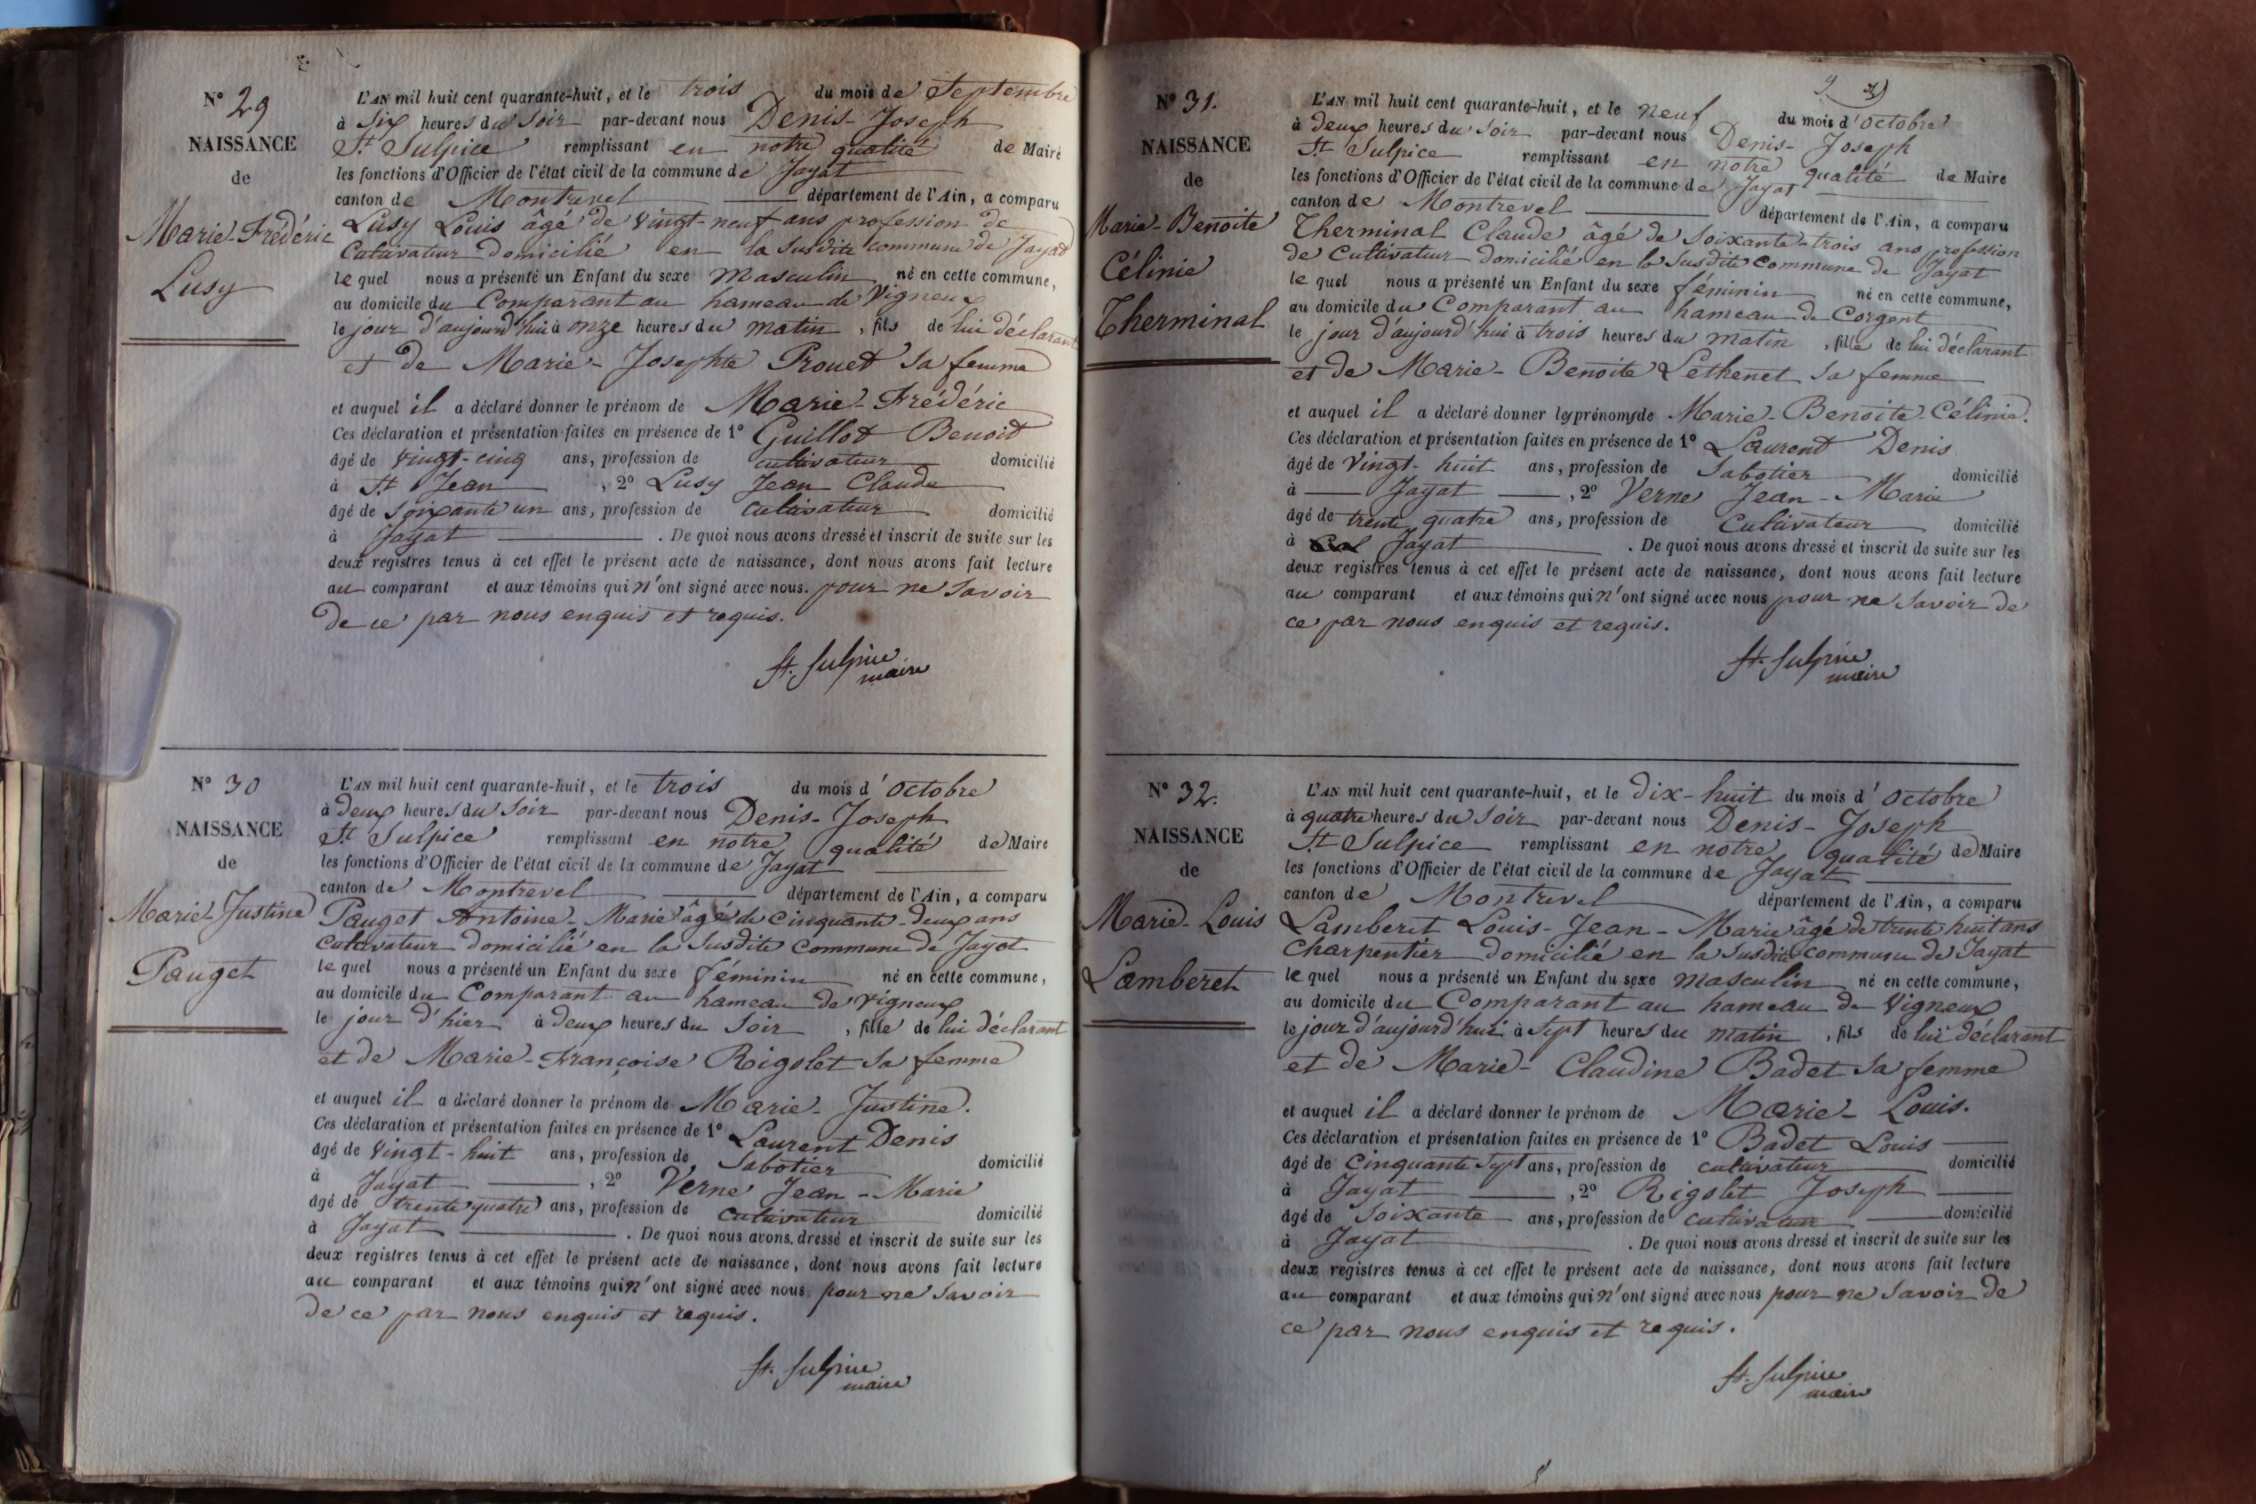 N° 29
NAISSANCE
de
Marie-Frédéric
Lusy
L'AN mil huit cent quarante-huit, et le trois du mois de Septembre
à Six heures du Soir par-devant nous Denis-Joseph
St Sulpice remplissant en notre qualité de Maire
les fonctions d'Officier de l'état civil de la commune de Jayat
canton de Montrevel département de l'Ain, a comparu
Lusy Louis âgé de vingt-neuf ans profession de
Cultivateur domicilié en la susdite commune de Jayat
lequel nous a présenté un Enfant du sexe masculin né en cette commune,
au domicile du Comparant au hameau de Vigneux
le jour d'aujourd'hui à onze heures du matin, fils de lui déclarant
et de Marie-Josephte Prouet sa femme
et auquel il a déclaré donner le prénom de Marie-Frédéric
Ces déclaration et présentation faites en présence de 1° Guillot Benoit
âgé de vingt-cinq ans, profession de cultivateur domicilié
à St Jean, 2° Lusy Jean Claude
âgé de soixante un ans, profession de cultivateur domicilié
à Jayat. De quoi nous avons dressé et inscrit de suite sur les
deux registres tenus à cet effet le présent acte de naissance, dont nous avons fait lecture
au comparant et aux témoins qui n'ont signé avec nous. pour ne savoir
de ce par nous enquis et requis.
St. Sulpice
maire
N° 30
NAISSANCE
de
Marie-Justine
Pauget
L'AN mil huit cent quarante-huit, et le trois du mois d'octobre
à deux heures du Soir par-devant nous Denis-Joseph
St Sulpice remplissant en notre qualité de Maire
les fonctions d'Officier de l'état civil de la commune de Jayat
canton de Montrevel département de l'Ain, a comparu
Pauget Antoine-Marie âgé de Cinquante-deux ans
cultivateur domicilié en la susdite commune de Jayat
lequel nous a présenté un Enfant du sexe féminin né en cette commune,
au domicile du Comparant au hameau de Vigneux
le jour d'hier à deux heures du Soir, fille de lui déclarant
et de Marie-Françoise Rigolet sa femme
et auquel il a déclaré donner le prénom de Marie-Justine.
Ces déclaration et présentation faites en présence de 1° Laurent Denis
âgé de vingt-huit ans, profession de Sabotier domicilié
à Jayat, 2° Verne Jean-Marie
âgé de trente quatre ans, profession de cultivateur domicilié
à Jayat. De quoi nous avons dressé et inscrit de suite sur les
deux registres tenus à cet effet le présent acte de naissance, dont nous avons fait lecture
au comparant et aux témoins qui n'ont signé avec nous, pour ne savoir
de ce par nous enquis et requis.
St. Sulpice
maire
9
N° 31.
NAISSANCE
de
Marie-Benoite
Célinie
Therminal
L'AN mil huit cent quarante-huit, et le neuf du mois d'octobre
à deux heures du Soir par-devant nous Denis-Joseph
St Sulpice remplissant en notre qualité de Maire
les fonctions d'Officier de l'état civil de la commune de Jayat
canton de Montrevel département de l'Ain, a comparu
Therminal Claude âgé de soixante-trois ans profession
de Cultivateur domicilié en la susdite commune de Jayat
lequel nous a présenté un Enfant du sexe féminin né en cette commune,
au domicile du Comparant au hameau de Corgent
le jour d'aujourd'hui à trois heures du matin, fille de lui déclarant
et de Marie-Benoite Lethenet sa femme
et auquel il a déclaré donner les prénoms de Marie-Benoite-Célinie.
Ces déclaration et présentation faites en présence de 1° Laurent Denis
âgé de vingt-huit ans, profession de Sabotier domicilié
à Jayat, 2° Verne Jean-Marie
âgé de trente quatre ans, profession de cultivateur domicilié
à Jayat. De quoi nous avons dressé et inscrit de suite sur les
deux registres tenus à cet effet le présent acte de naissance, dont nous avons fait lecture
au comparant et aux témoins qui n'ont signé avec nous pour ne savoir de
ce par nous enquis et requis.
St. Sulpice
maire
N° 32.
NAISSANCE
de
Marie-Louis
Lamberet
L'AN mil huit cent quarante-huit, et le dix-huit du mois d'octobre
à quatre heures du Soir par-devant nous Denis-Joseph
St Sulpice remplissant en notre qualité de Maire
les fonctions d'Officier de l'état civil de la commune de Jayat
canton de Montrevel département de l'Ain, a comparu
Lamberet Louis-Jean-Marie âgé de trente huit ans
Charpentier domicilié en la susdite commune de Jayat
lequel nous a présenté un Enfant du sexe masculin né en cette commune,
au domicile du Comparant au hameau de Vigneux
le jour d'aujourd'hui à sept heures du matin, fils de lui déclarant
et de Marie-Claudine Badet sa femme
et auquel il a déclaré donner le prénom de Marie-Louis.
Ces déclaration et présentation faites en présence de 1° Badet Louis
âgé de Cinquante sept ans, profession de cultivateur domicilié
à Jayat, 2° Rigolet Joseph
âgé de soixante ans, profession de cultivateur domicilié
à Jayat. De quoi nous avons dressé et inscrit de suite sur les
deux registres tenus à cet effet le présent acte de naissance, dont nous avons fait lecture
au comparant et aux témoins qui n'ont signé avec nous pour ne savoir de
ce par nous enquis et requis.
St. Sulpice
maire